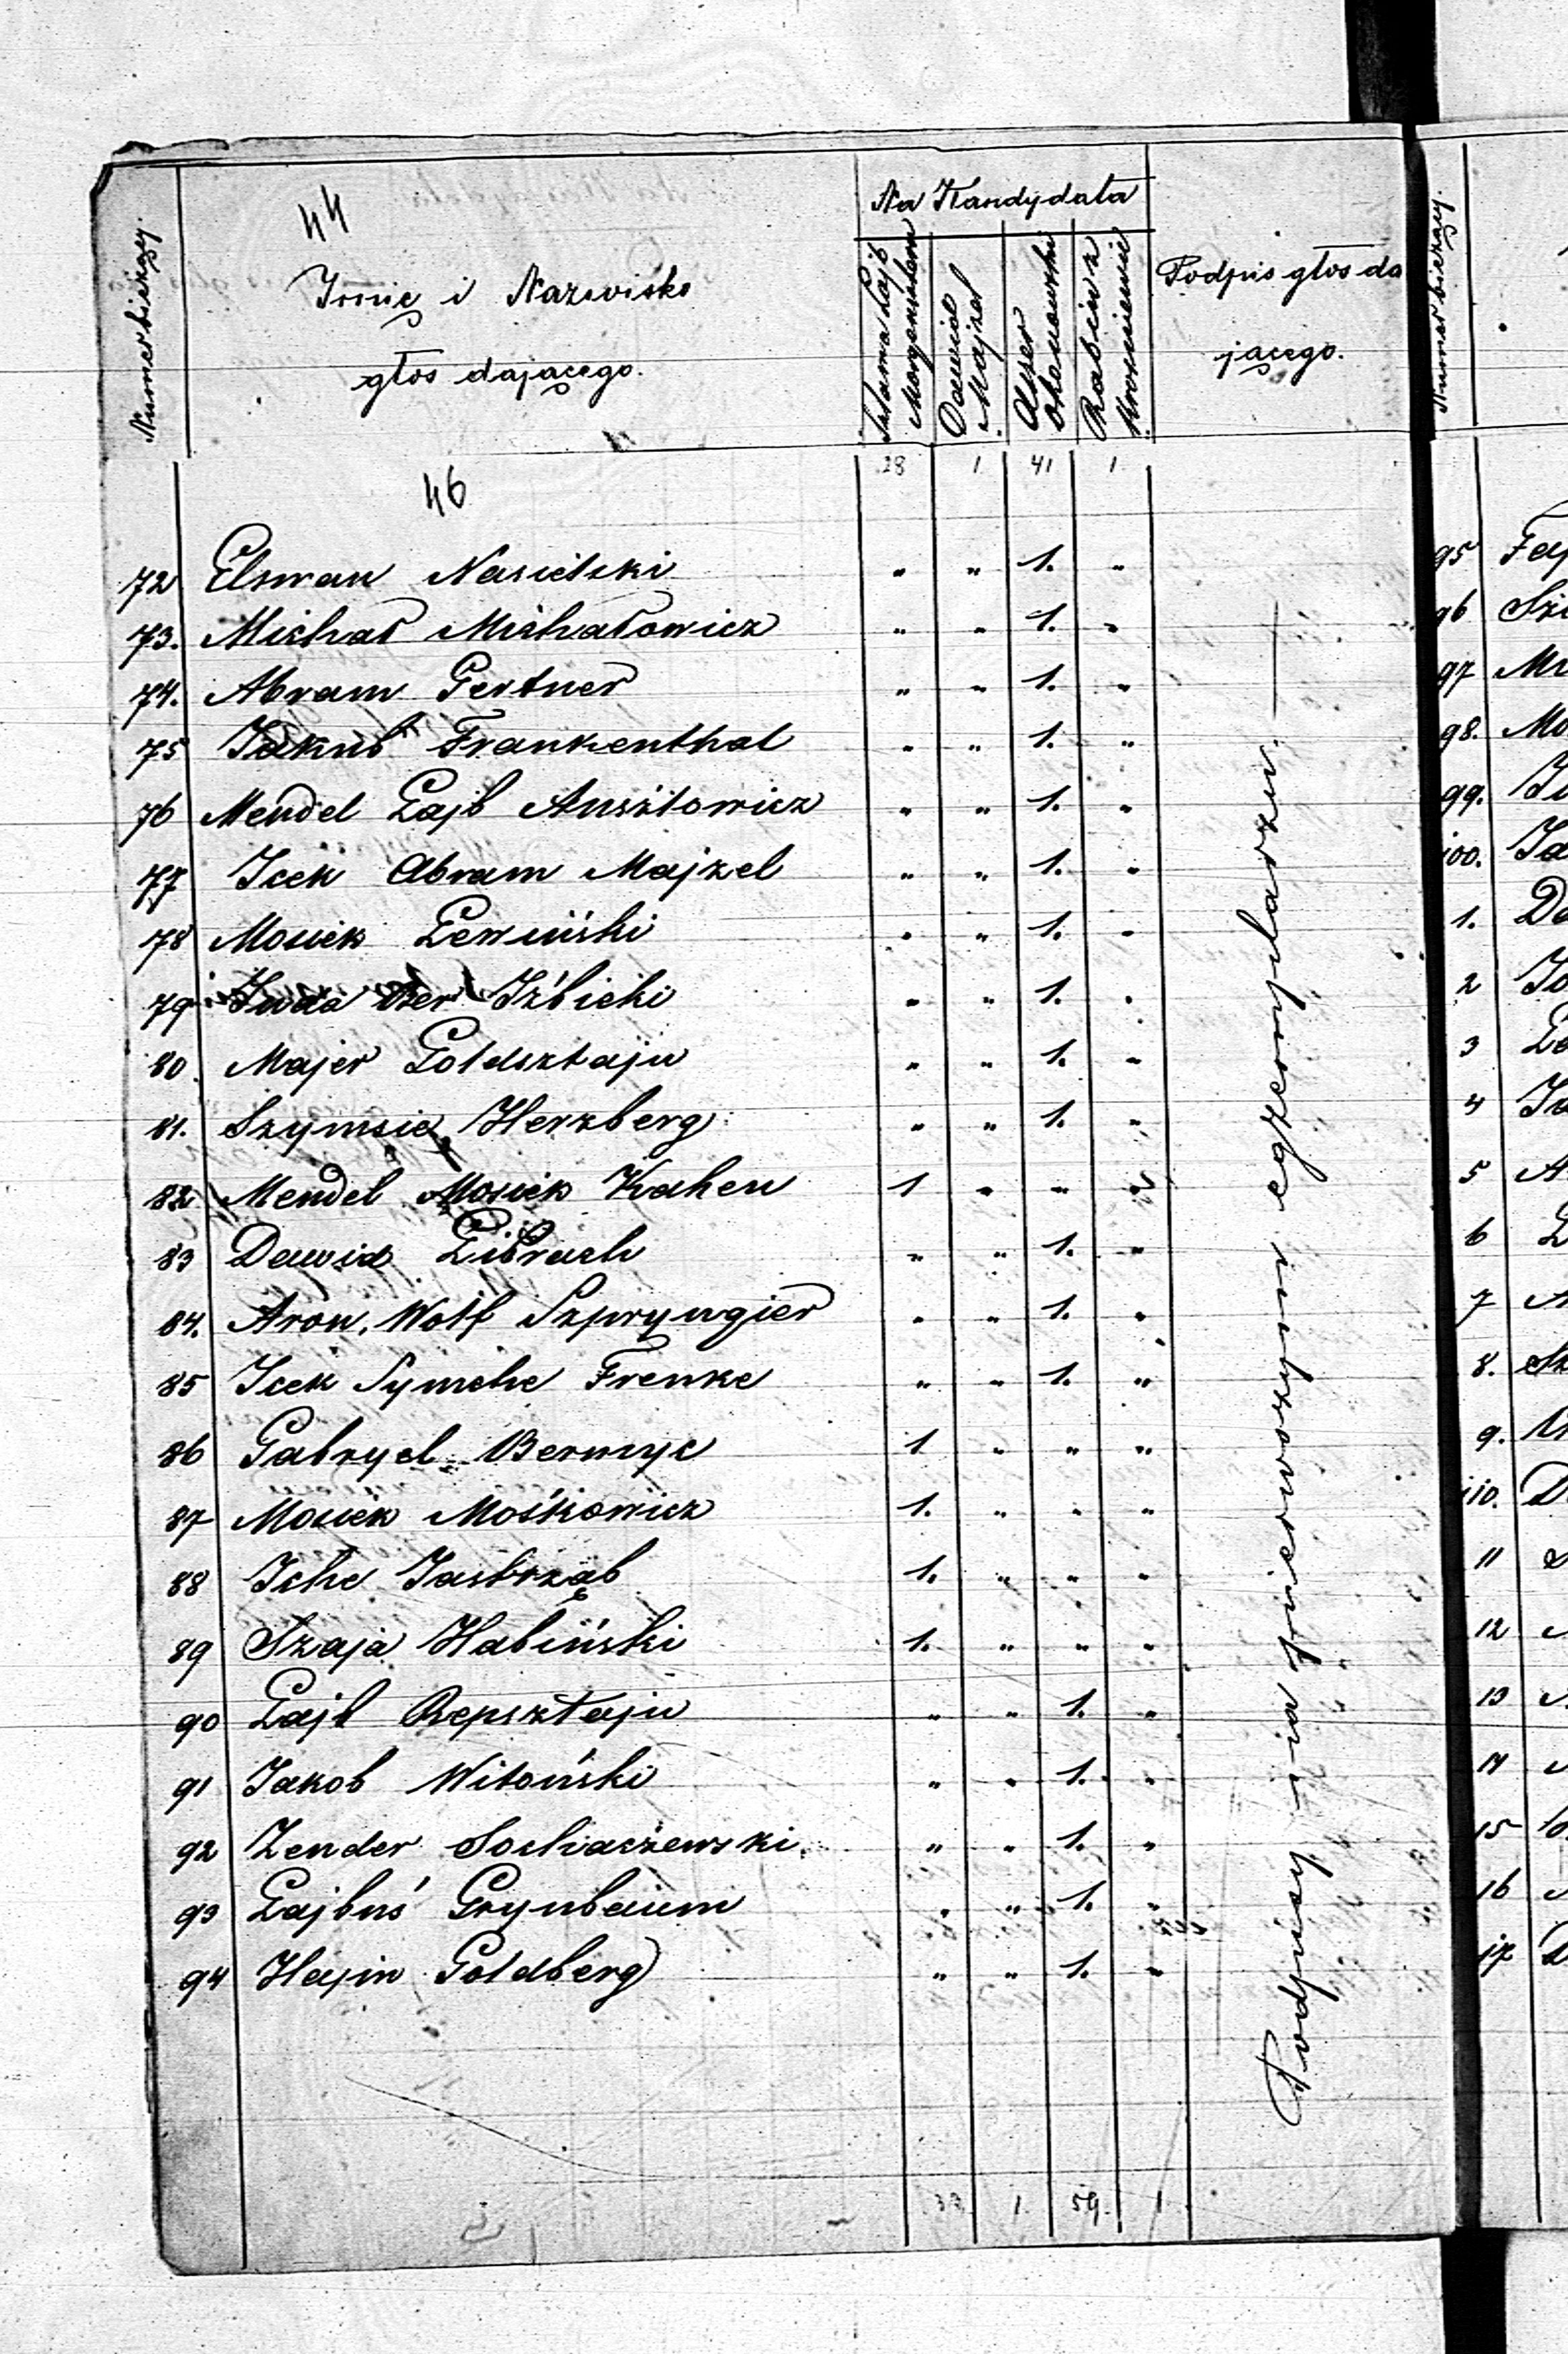 44
Numer bieżący.
Imie i Nazwisko
głos dającego.
Na Kandydata
Szlama Lajb Morgensztern
Dawid Majzel
Asser
Rabin z
Podpis głos da
jącego.
Numer bieżący.
28 1 41 1
46
72 Elsman Nasielski " " 1. "
73. Michał Michałowicz " " 1. "
74. Abram Gertner " " 1. "
75 Jakub Frankenthal " " 1. "
76 Mendel Lajb Ansztowicz " " 1. "
77 Icek Abram Majzel " " 1. "
78 Mosiek Lewiński " " 1. "
79 Juda Ber Iżbicki " " 1. "
80 Majer Goldsztajn " " 1. "
81. Szymsie Herzberg " " 1. "
82 Mendel Mosiek Kahen 1 " " "
83 Dawid Librach " " 1. "
84. Aron Wolf Szpryngier " " 1. "
85 Icek Symche Frenke " " 1. "
86 Gabryel Bermyc 1 " " "
87 Mosiek Mośkowicz 1. " " "
88 Iche Jastrząb 1. " " "
89 Szaja Habiński 1. " " "
90 Lajb Repsztajn " " 1. "
91 Jakob Witoński " " 1. "
92 Zender Sochaczewski " " 1. "
93 Lajbuś Grynbaum " " 1. "
94 Hajm Goldberg " " 1. "
33 1. 59. 1
Podpisy na pierwszym egzemplarzu.
95
96
97
98.
99.
100.
1.
2
3
4
5
6
7
8.
9.
110.
11
12
13
14
15
16
17